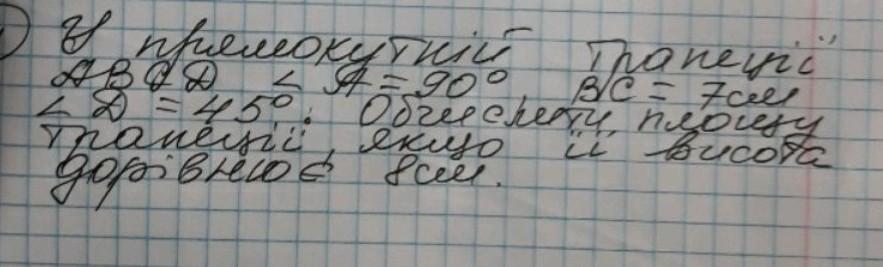 ) У прямокутній трапеції
ABCD ∠ A = 90° BC = 7см
∠ D = 45°. Обчислити площу
трапеції, якщо її висота
дорівнює 8см.